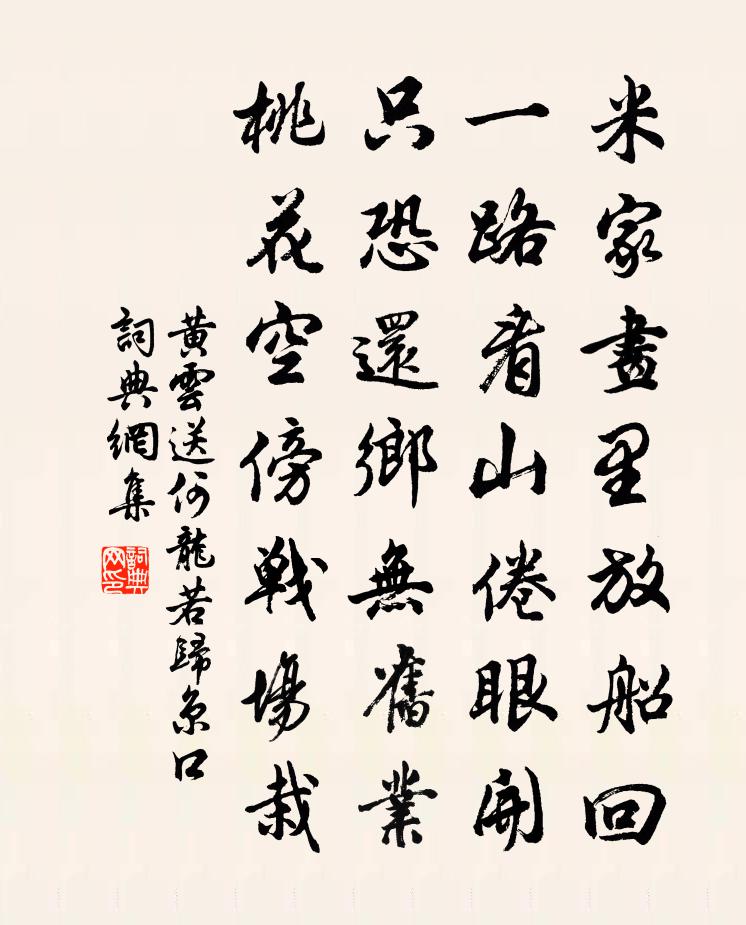 米家畫里放船回
一路看山倦眼開
只恐還鄉無舊業
桃花空傍戰場栽
黃雲送何龍若歸京口
詞典網集
詞典網印